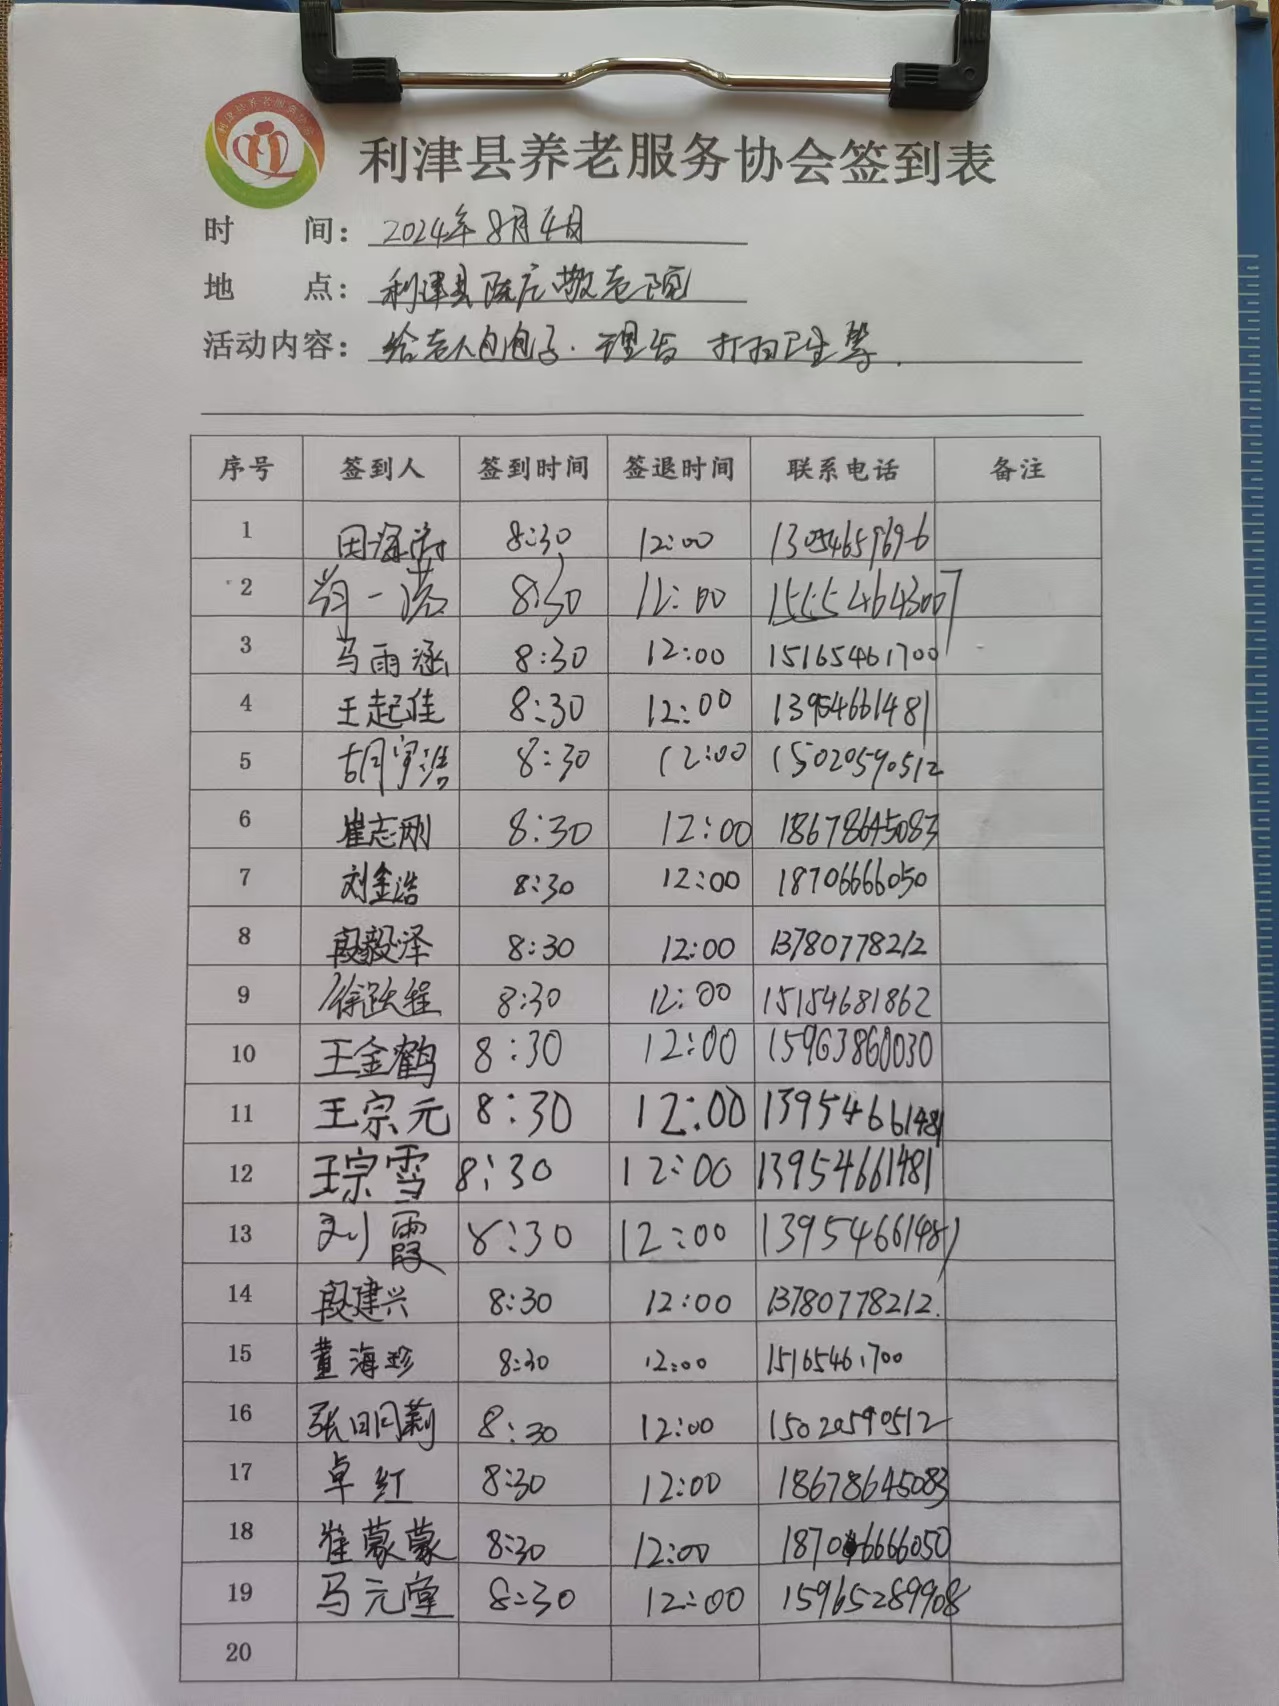 利津县养老服务协会
利津县养老服务协会签到表
时 间：2024年8月4日
地 点：利津县陈庄敬老院
活动内容：给老人包包子.理发 打扫卫生等.
序号 签到人 签到时间 签退时间 联系电话 备注
1 田海 8:30 12:00 13054659696
2 一 8:30 12:00 15554643007
3 马雨涵 8:30 12:00 15165461700
4 王起佳 8:30 12:00 13954661481
5 胡宇浩 8:30 12:00 15020590512
6 崔志刚 8:30 12:00 18678645083
7 刘金浩 8:30 12:00 18706666050
8 段毅泽 8:30 12:00 13780778212
9 徐跃程 8:30 12:00 15154681862
10 王金鹤 8:30 12:00 15963860030
11 王宗元 8:30 12:00 13954661481
12 王宗雪 8:30 12:00 13954661481
13 刘霞 8:30 12:00 13954661481
14 段建兴 8:30 12:00 13780778212.
15 董海珍 8:30 12:00 15165461700
16 张明莉 8:30 12:00 15020590512
17 卓红 8:30 12:00 18678645083
18 崔蒙蒙 8:30 12:00 18706666050
19 马元堂 8:30 12:00 15965289908
20